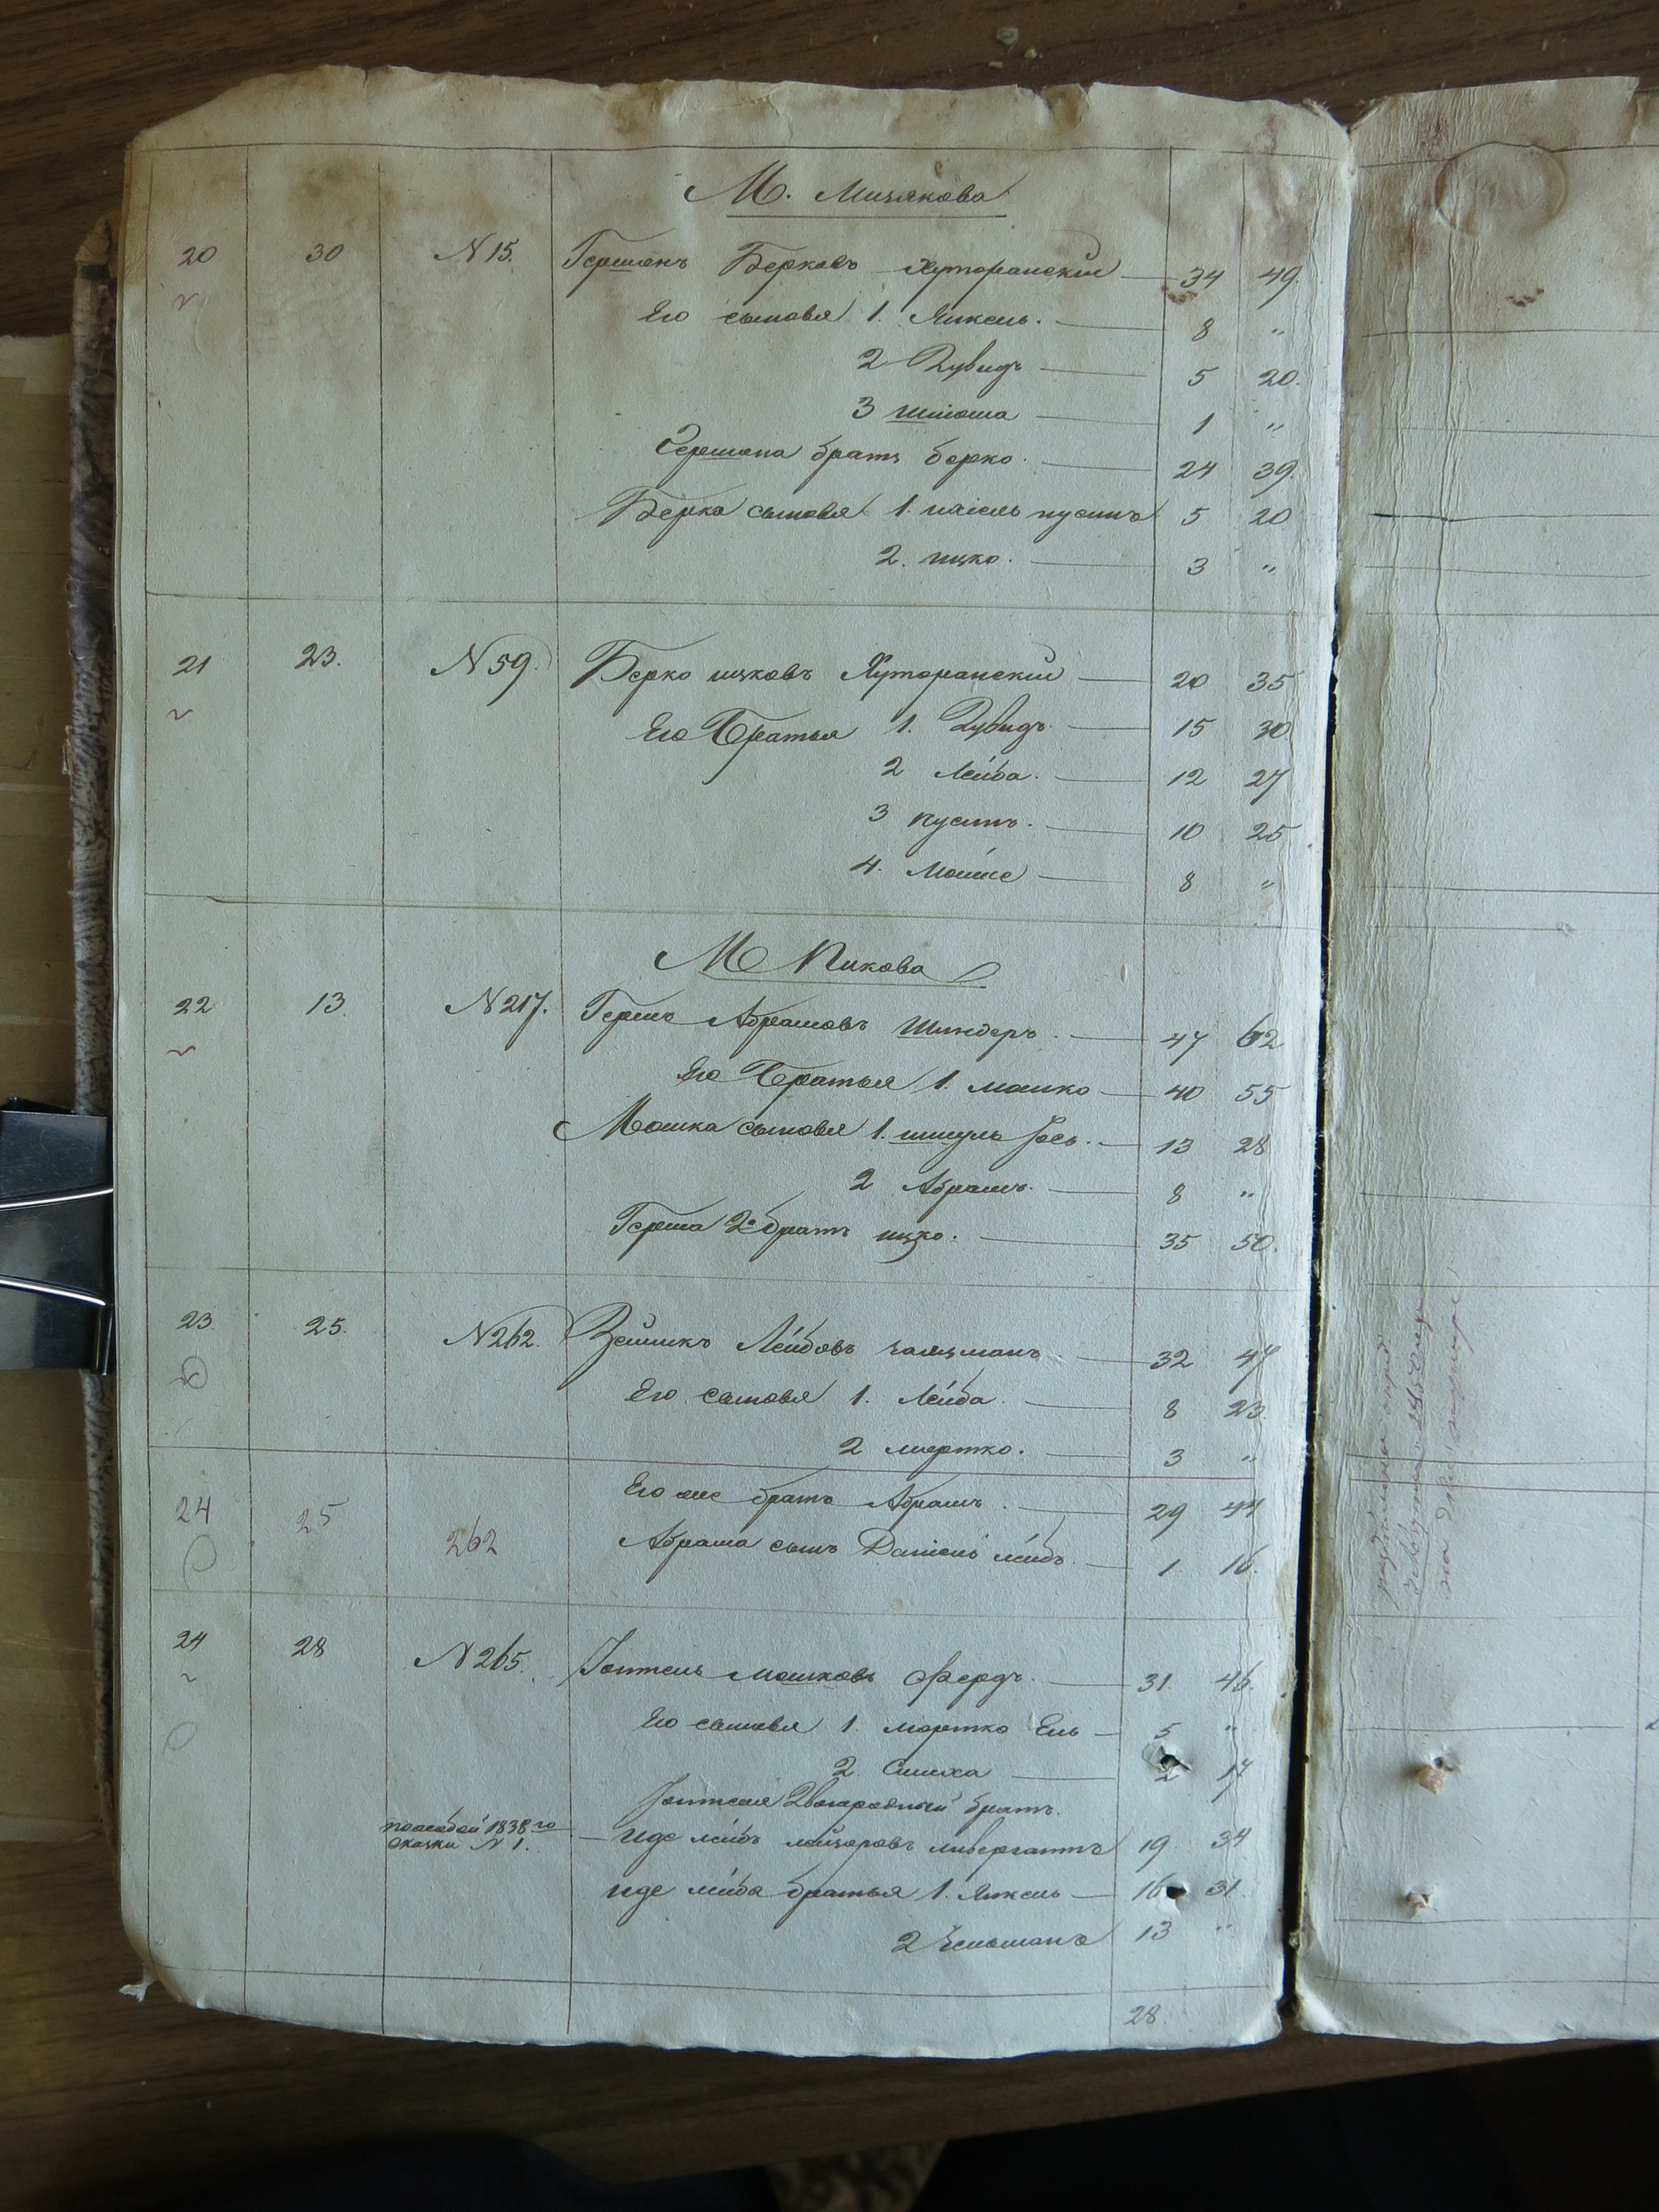 М. Мизякова
20 30 N 15. Гершонъ Берковъ Хуторанскій 34 49.
Его сыновья 1. Янкель. 8 "
2 Дувидъ 5 20.
3 Шлиома 1 "
Гершона братъ берко. 24 39.
Берка сыновья 1. иаісль нусинъ 5 20
2. ицко. 3 "
21 23. N 59. Берко ицковъ Хуторанскій 20 35
Его Братья 1. Дувидъ. 15 30
2 Лейба. 12 27
3 нусинъ. 10 25
4. Мошке 8 "
М Пикова
22 13. N 217. Гершъ Абрамовъ Шиндеръ. 47 62
Его Братья 1. мошко 40 55
Мошка сыновья 1. шмуль Іось. 13 28
2 Абрамъ. 8 "
Герша 2й братъ ицко. 35 50.
23 25. N 262. Зейликъ Лейбовъ 32 47
Его сыновья 1. Лейба. 8 23
2 мортко. 3 "
24 25 262 Его же братъ Абрамъ. 29 44
Абрама сынъ Даніель лейбъ. 1 16.
24 28 N 265. мошковъ Фердъ. 31. 46.
Его сыновья 1. мортко Ель 5 "
2. Симха 2 17
Двоюродный братъ.
поособой 1838го
сказки N 1. иде лейбъ лейзоровъ 19 34
иде лейба братья 1. Янкель 16 31.
2 Зельманъ 13 "
28.